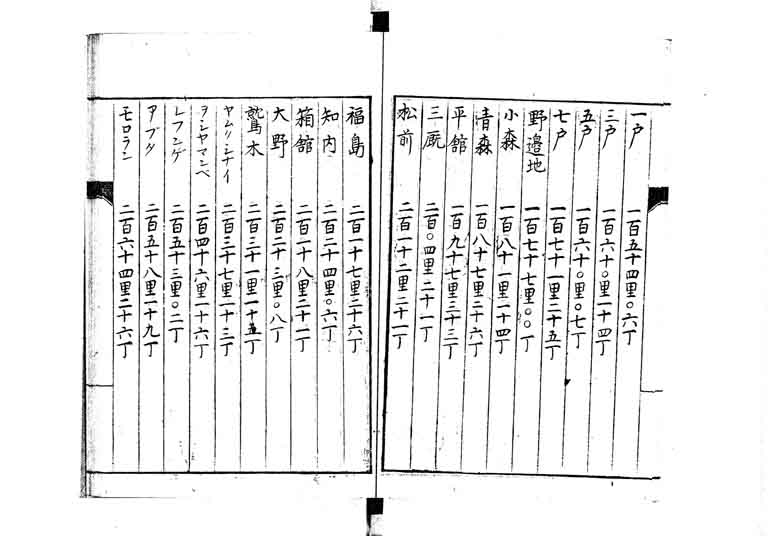 一戸　一百五十四里〇六丁
三戸　一百六十〇里一十四丁
五戸　一百六十〇里〇七丁
七戸　一百七十一里二十五丁
野邉地　一百七十七里〇〇丁
小森　一百八十一里一十四丁
青森　一百八十七里二十六丁
平舘　一百九十七里三十三丁
三厩　二百〇四里二十一丁
松前　二百一十二里二十一丁
福島　二百一十七里三十六丁
知内　二百二十四里〇六丁
箱舘　二百一十八里二十一丁
大野　二百二十三里〇八丁
鷲木　二百三十一里一十五丁
ヤムクシナイ　二百三十七里一十三丁
ヲシヤマンベ　二百四十六里一十六丁
レフンゲ　二百五十三里〇二丁
アブタ　二百五十八里二十九丁
モロラン　二百六十四里二十六丁